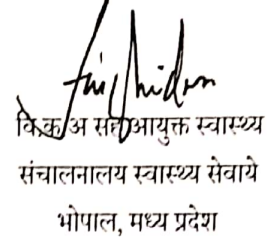 वि.क.अ सह आयुक्त स्वास्थ्य
संचालनालय स्वास्थ्य सेवाये
भोपाल, मध्य प्रदेश